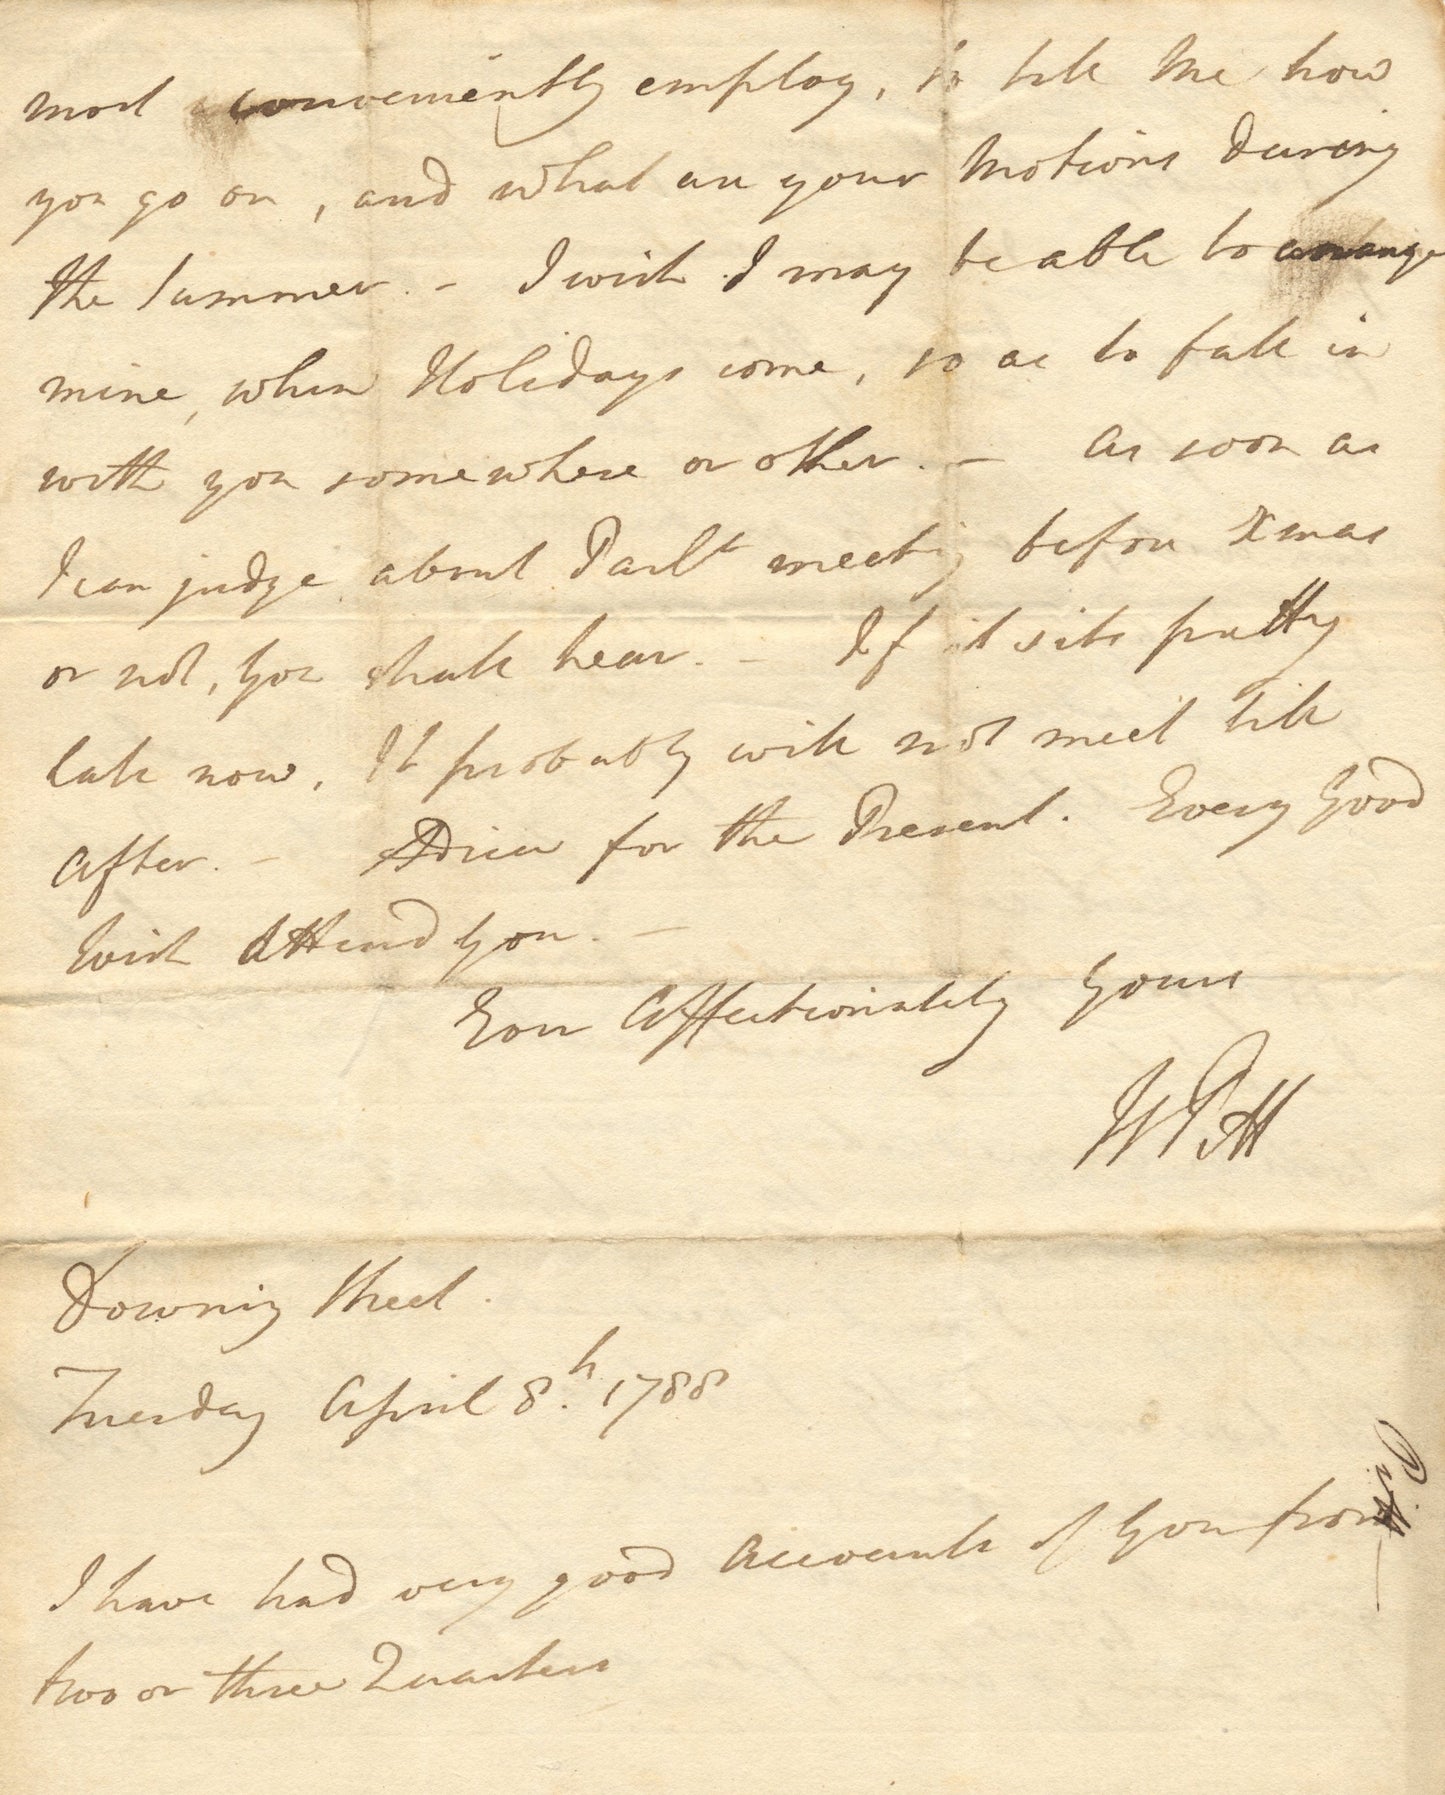 most conveniently employ, to tell me how
you go on, and what are your Motions during
the Summer. - I wish I may be able to arrange
mine, when Holidays come, so as to fall in
with you somewhere or other. - As soon as
I can judge about Parlt meeting before Xmas
or not, you shall hear. - If it sits pretty
late now, It probably will not meet till
after. - Adieu for the Present. Every Good
Wish Attend you. -
Ever Affectionately Yours
W Pitt
Downing Street.
Tuesday April 8.h 1788
I have had very good Accounts of you from
two or three Quarters
Pitt